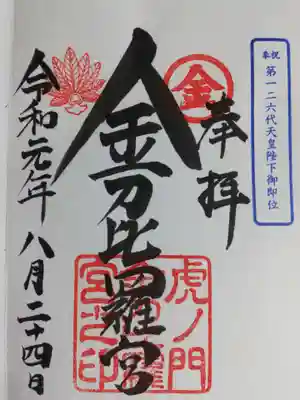 奉祝
第一二六代天皇陛下御即位
奉拝
金
金刀比羅宮
虎ノ門
宮之印
令和元年八月二十四日